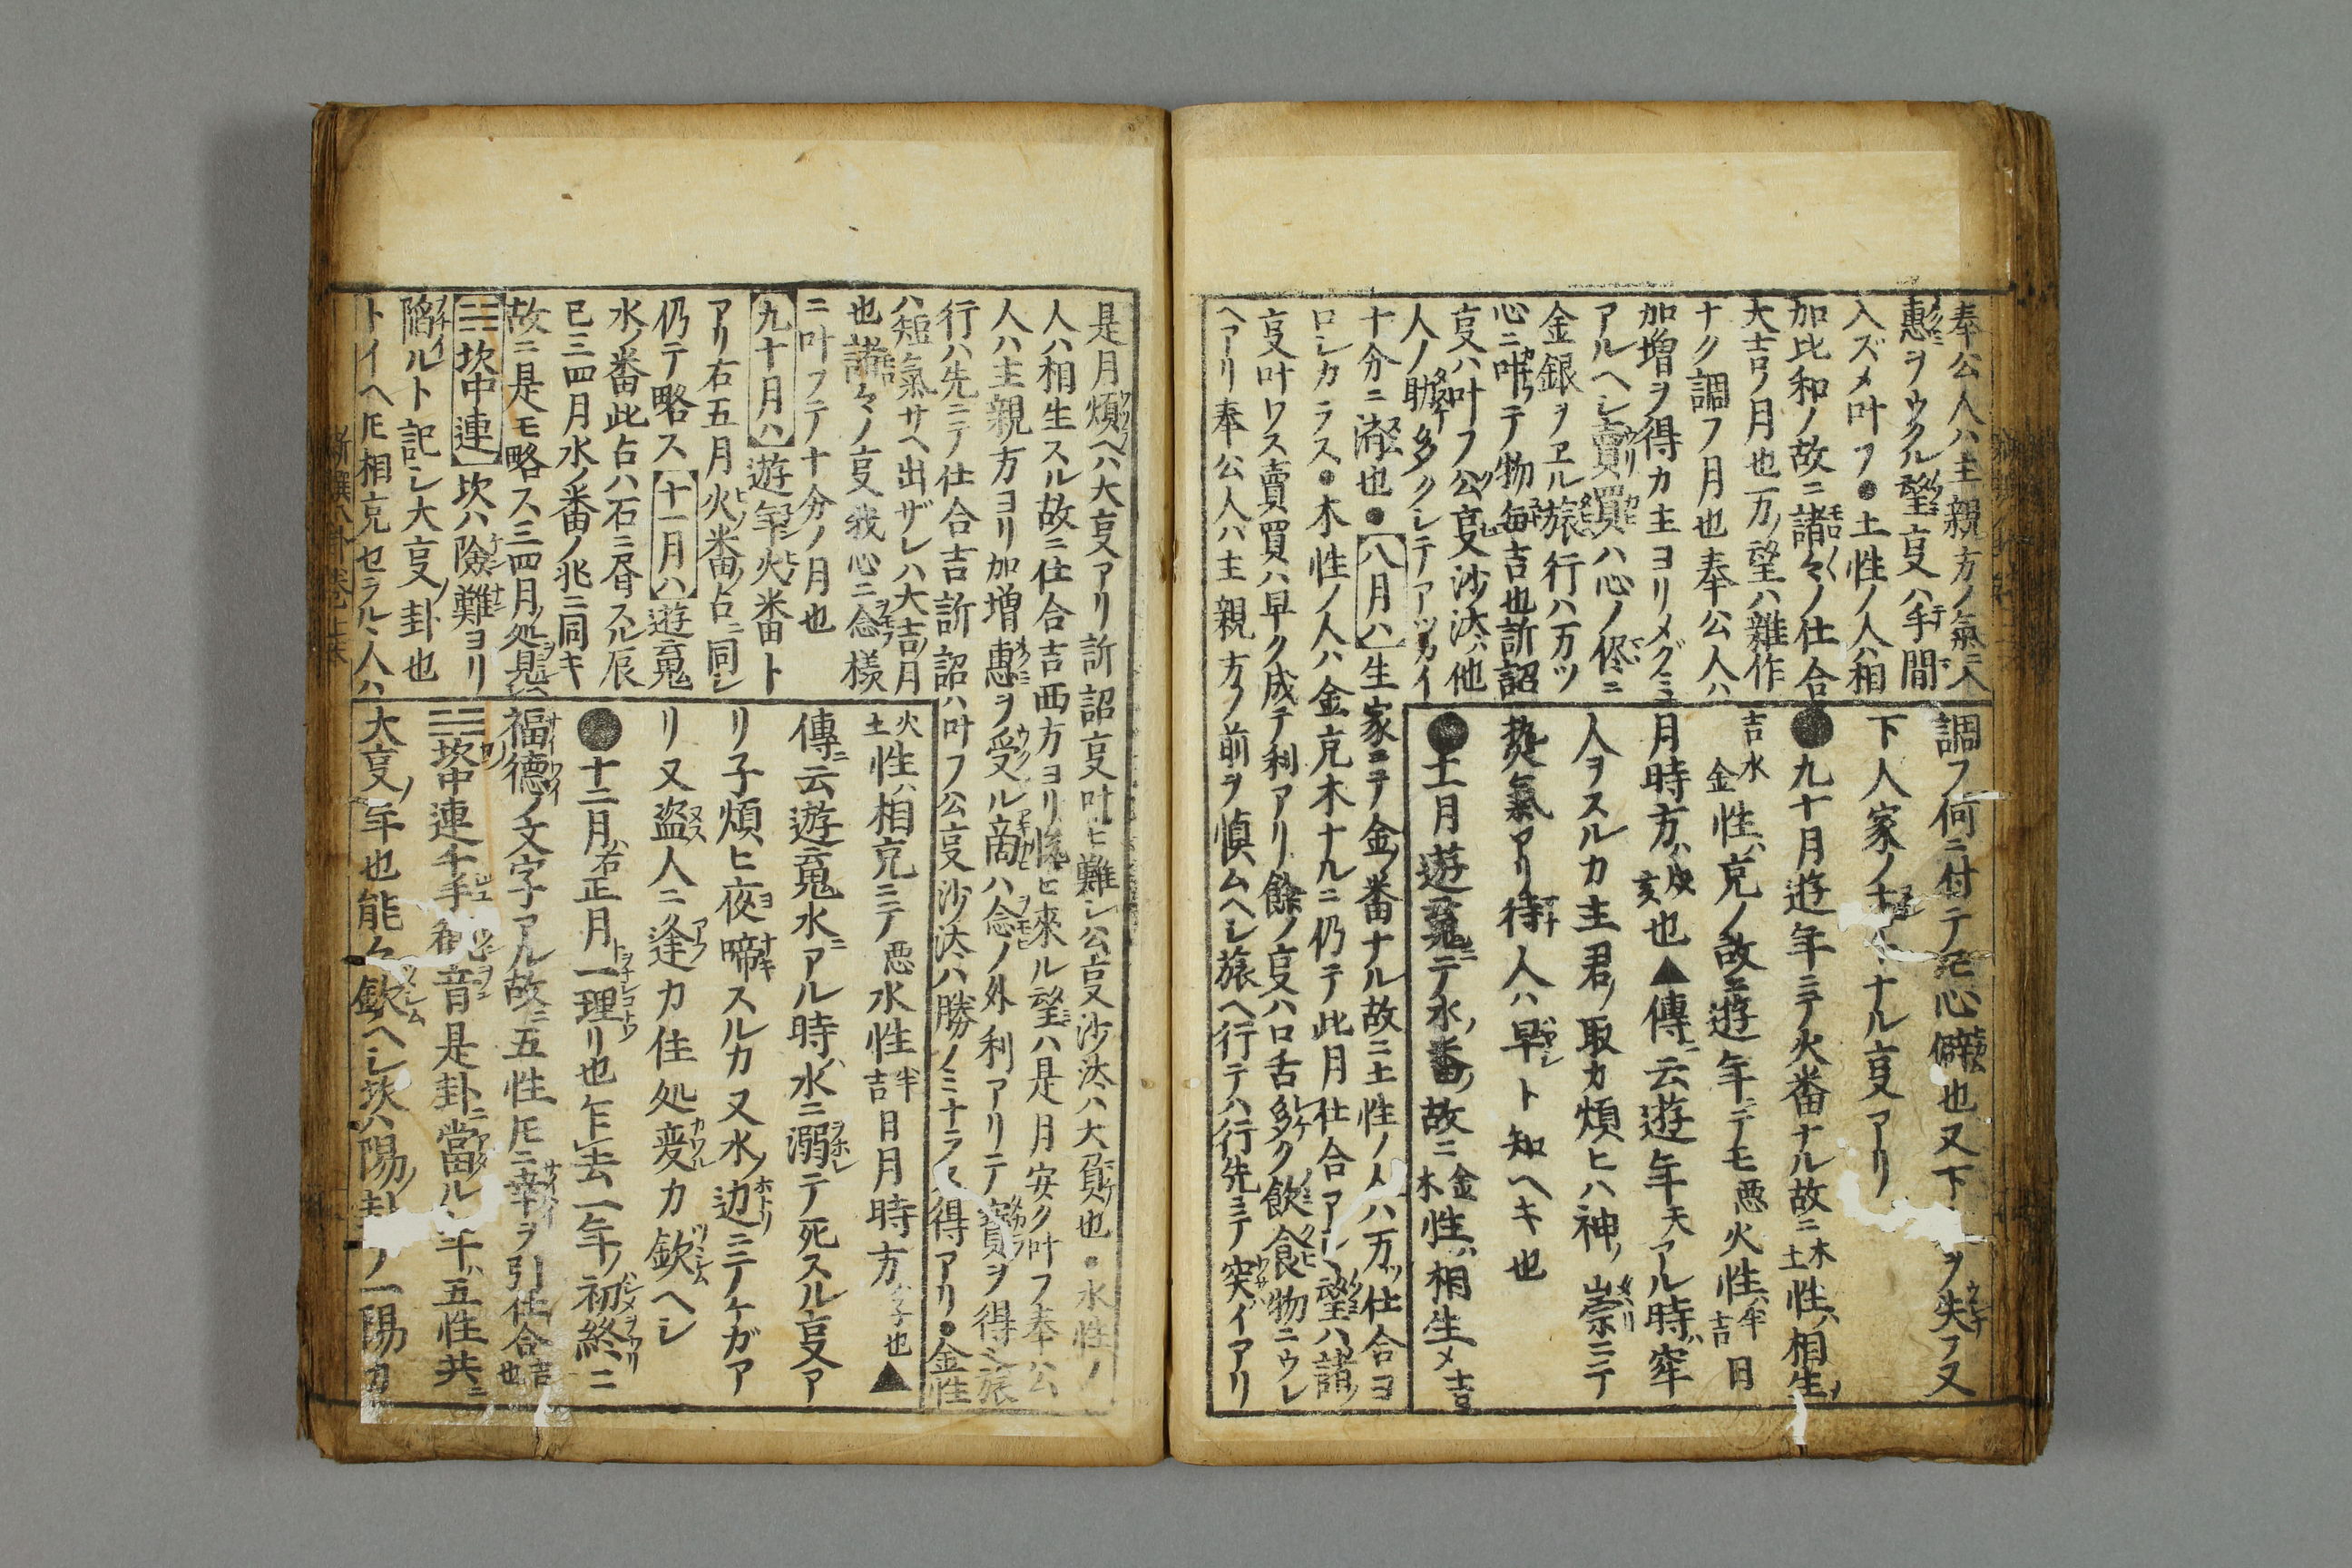 奉公人ハ主親方ノ氣ニ入
惠ヲウクル望叓ハ手間
入ズメ叶フ●土性ノ人ハ相
加比和ノ故ニ諸々ノ仕合
大吉ノ月也万ノ望ハ雜作
ナク調フ月也奉公人ハ
加増ヲ得カ主ヨリメグミ
アルヘシ賣買ハ心ノ侭ニ
金銀ヲヱル旅行ハ万ツ
心ニ叶テ物毎吉也訴詔
叓ハ叶フ公叓沙汰ハ他
人ノ助多クシテアツカイ
十分ニ濟也●【八月ハ】生家ニテ金ノ番ナル故ニ土性ノ人ハ万ッ仕合ヨ
ロシカラス●木性ノ人ハ金克木ナルニ仍テ此月仕合アシ望ハ諸ノ
叓叶ワス賣買ハ早ク成テ利アリ餘ノ叓ハ口舌多ク飲食物ニウレ
ヘアリ奉公人ハ主親方ノ前ヲ慎ムヘシ旅ヘ行テハ行先ニテ突イアリ
調フ何ニ付テ心僻也又下ヲ失フ又
下人家ノナル叓アリ
●九十月遊年ニテ火番ナル故ニ木土性ハ相生メ
吉水金性ハ克ノ故ニ遊年ニテモ悪火性ハ半吉日
月時方ハ戌亥也▲傳ニ云遊年天アル時ハ牢
人ヲスルカ主君ノ取カ煩ヒハ神ノ崇ニテ
熱氣アリ待人ハ早ト知ヘキ也
●十一月遊䰟ニテ水ノ番ノ故ニ金木性ハ相生メ吉
是月煩ヘハ大叓アリ訴詔叓叶ヒ難シ公叓沙汰ハ大負也●水性ノ
人ハ相生スル故ニ仕合吉西方ヨリ悦ヒ來ル望ハ是月安ク叶フ奉公
人ハ主親方ヨリ加増惠ヲ受ル商ハ念ノ外利アリテ寶ヲ得ル旅
行ハ先ニテ仕合吉訴詔ハ叶フ公叓沙汰ハ勝ノミナラス得アリ●金性
ハ短氣サヘ出ザレハ大吉月
也諸々ノ叓我心ニ念樣
ニ叶フテ十分ノ月也
【九十月ハ】遊年火番ト
アリ右五月火番ノ占ニ同シ
仍テ略ス【十一月ハ】遊䰟
水ノ番此占ハ右ニ屑スル辰
巳三四月水ノ番ノ兆ニ同キ
故ニ是モ略ス三四月ノ処ヲ見ヘ
【☵坎中連】坎ハ險難ヨリ
陷ルト記シ大叓ノ卦也
トイヘ𪜈相克セラル丶人ハ
火土性ハ相克ニテ悪水性半吉日月時方ハ子也▲
傳ニ云遊䰟水ニアル時ハ水ニ溺テ死スル叓ア
リ子煩ヒ夜啼スルカ又水ノ边ニテケガア
リ又盗人ニ逢カ住処変カ欽ヘシ
●十二月ハ右正月一理リ也乍去一年ノ初終ニ
福德ノ文字アル故ニ五性𪜈ニ幸ヲ引仕合吉也
☵坎中連千手觀音是卦ニ當ル年ハ五性共ニ
大叓ノ年也能々欽ヘシ坎ハ陽ノ卦ノ一陽カ
新撰八卦卷上本